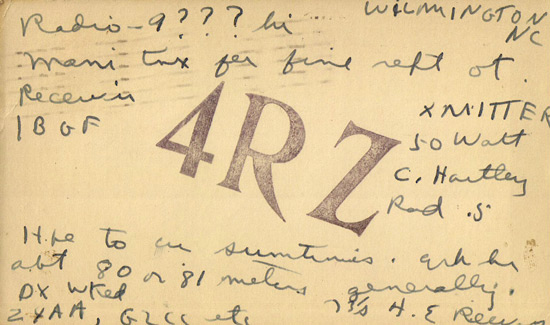 WILMINGTON
NC
Radio - 9 ? ? ? hi
Mani tnx fer fine rept ot.
Receivin
1BGF
4RZ
XMITTER
50 Watt
C. Hartley
Rad .5
Hpe to cu sumtimes. qrh hr
abt 80 or 81 meters generally.
DX WKed
2XAA, G2CC etc